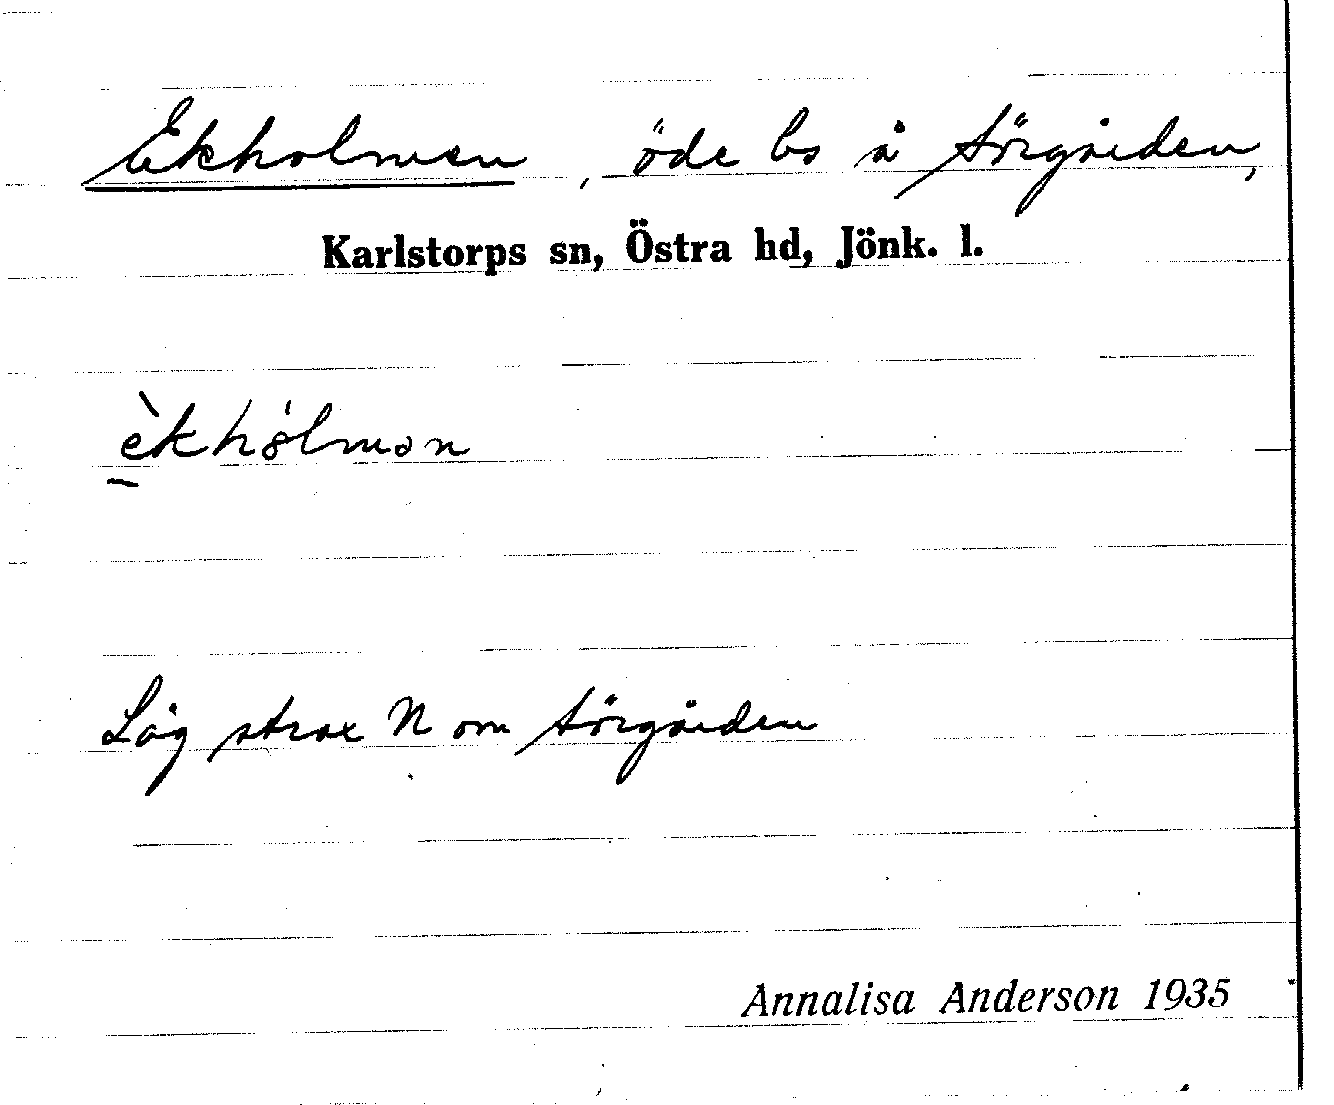 Ekholmen, öde bs å Sörgården,
Karlstorps sn, Östra hd, Jönk. l.
èkhólmən
Låg strax N om Sörgården
Annalisa Anderson 1935